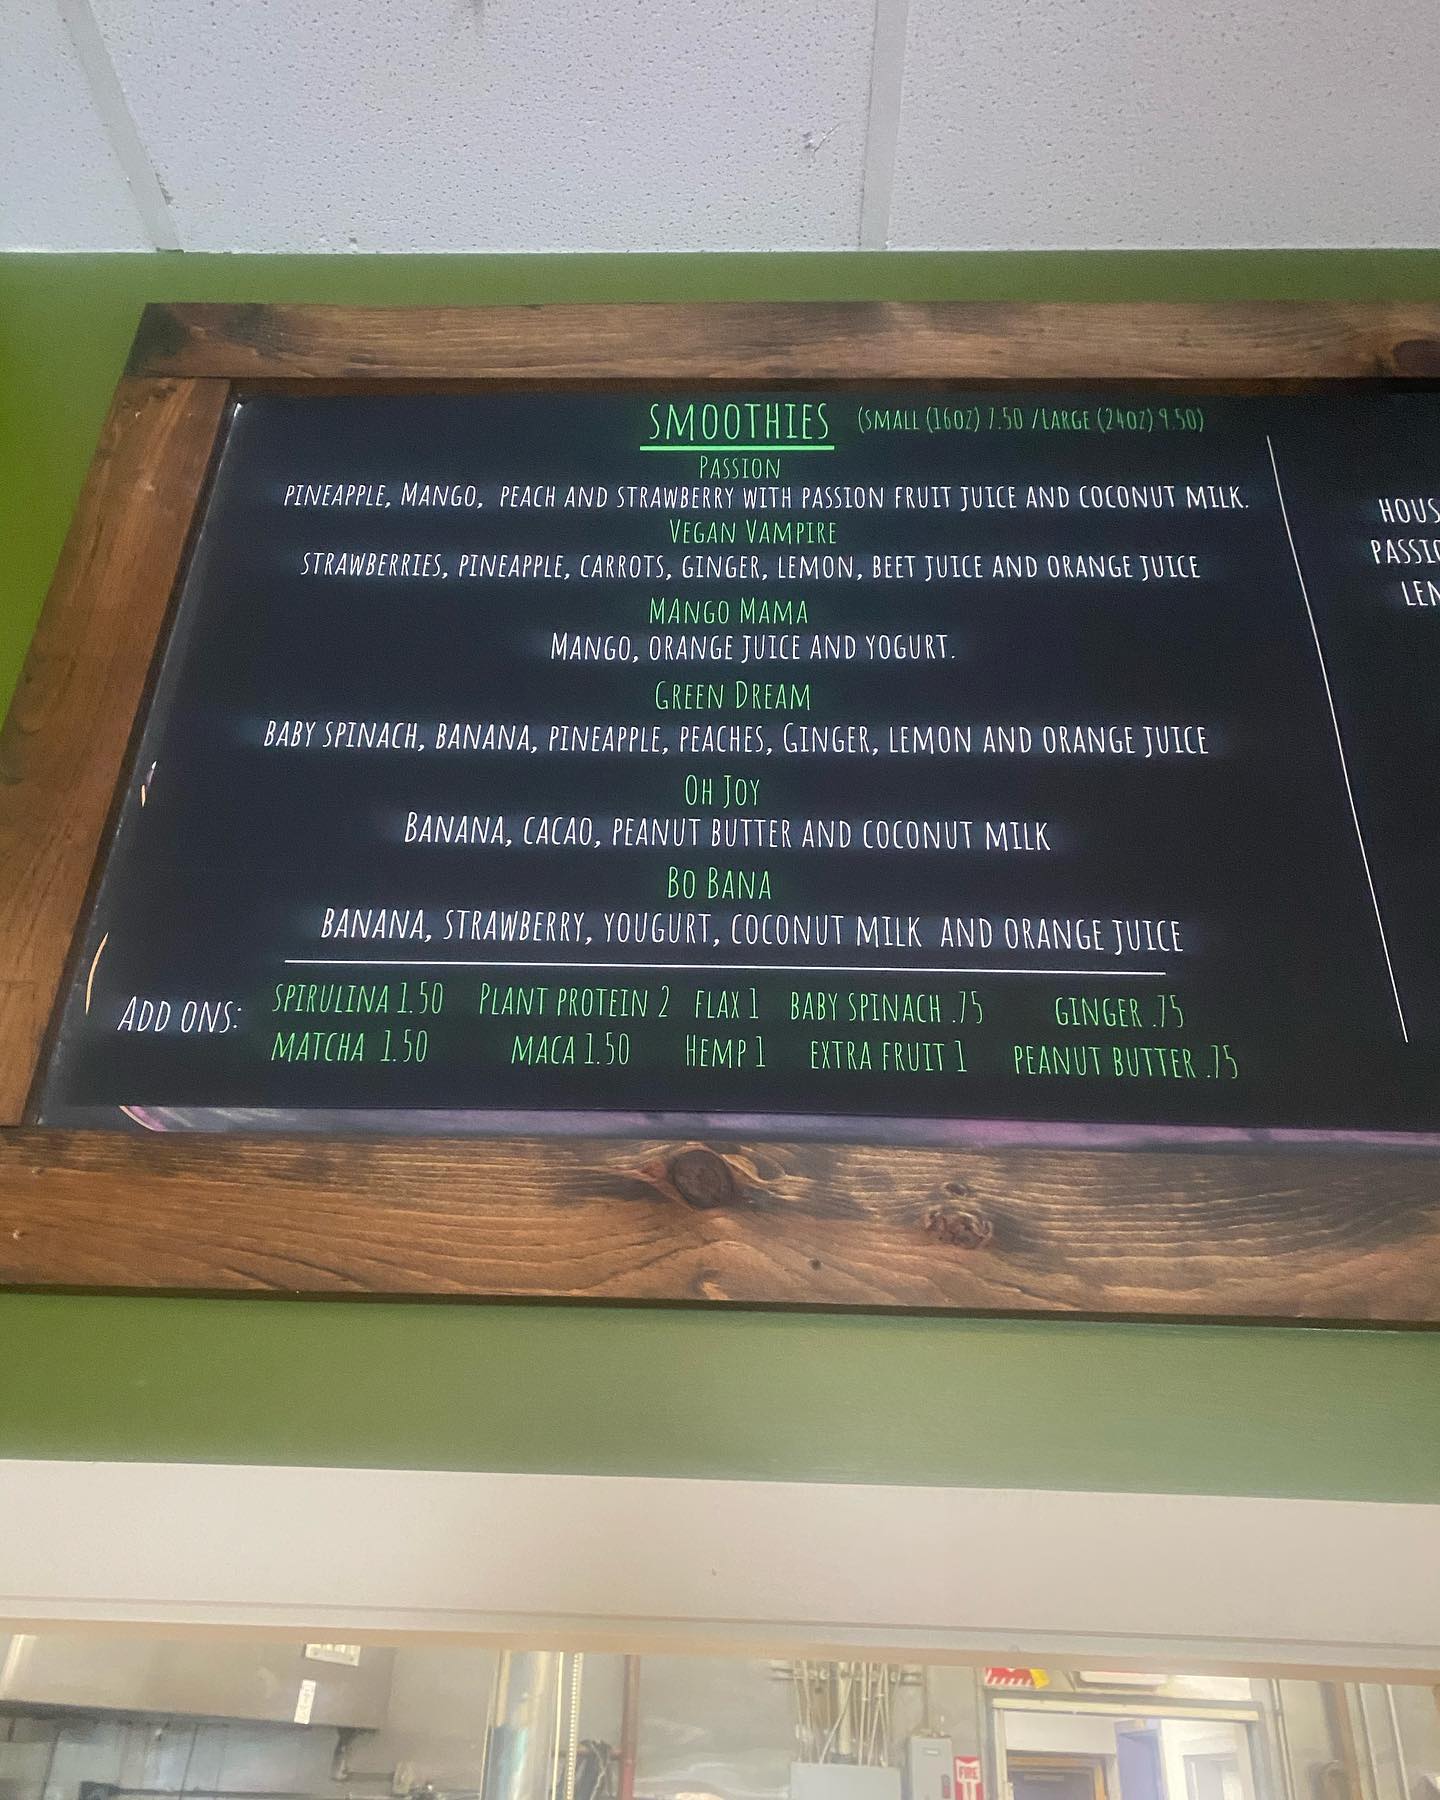 SMOOTHIES (SMALL (16OZ) 7.50 / LARGE (24OZ) 9.50)
PASSION
PINEAPPLE, MANGO, PEACH AND STRAWBERRY WITH PASSION FRUIT JUICE AND COCONUT MILK.
VEGAN VAMPIRE
STRAWBERRIES, PINEAPPLE, CARROTS, GINGER, LEMON, BEET JUICE AND ORANGE JUICE
MANGO MAMA
MANGO, ORANGE JUICE AND YOGURT.
GREEN DREAM
BABY SPINACH, BANANA, PINEAPPLE, PEACHES, GINGER, LEMON AND ORANGE JUICE
OH JOY
BANANA, CACAO, PEANUT BUTTER AND COCONUT MILK
BO BANA
BANANA, STRAWBERRY, YOUGURT, COCONUT MILK AND ORANGE JUICE
ADD ONS: SPIRULINA 1.50 PLANT PROTEIN 2 FLAX 1 BABY SPINACH .75 GINGER .75
MATCHA 1.50 MACA 1.50 HEMP 1 EXTRA FRUIT 1 PEANUT BUTTER .75
HOUS
PASSIO
LEM
FIRE